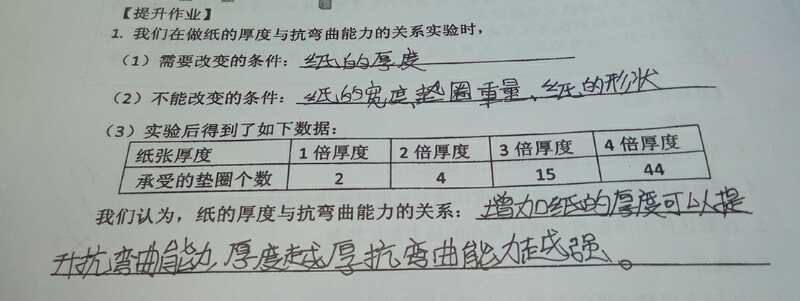 【提升作业】
1. 我们在做纸的厚度与抗弯曲能力的关系实验时，
（1）需要改变的条件：纸的厚度
（2）不能改变的条件：纸的宽度、垫圈重量、纸的形状
（3）实验后得到了如下数据：
纸张厚度 1倍厚度 2倍厚度 3倍厚度 4倍厚度
承受的垫圈个数 2 4 15 44
我们认为，纸的厚度与抗弯曲能力的关系：增加纸的厚度可以提
升抗弯曲能力，厚度越厚抗弯曲能力越强。